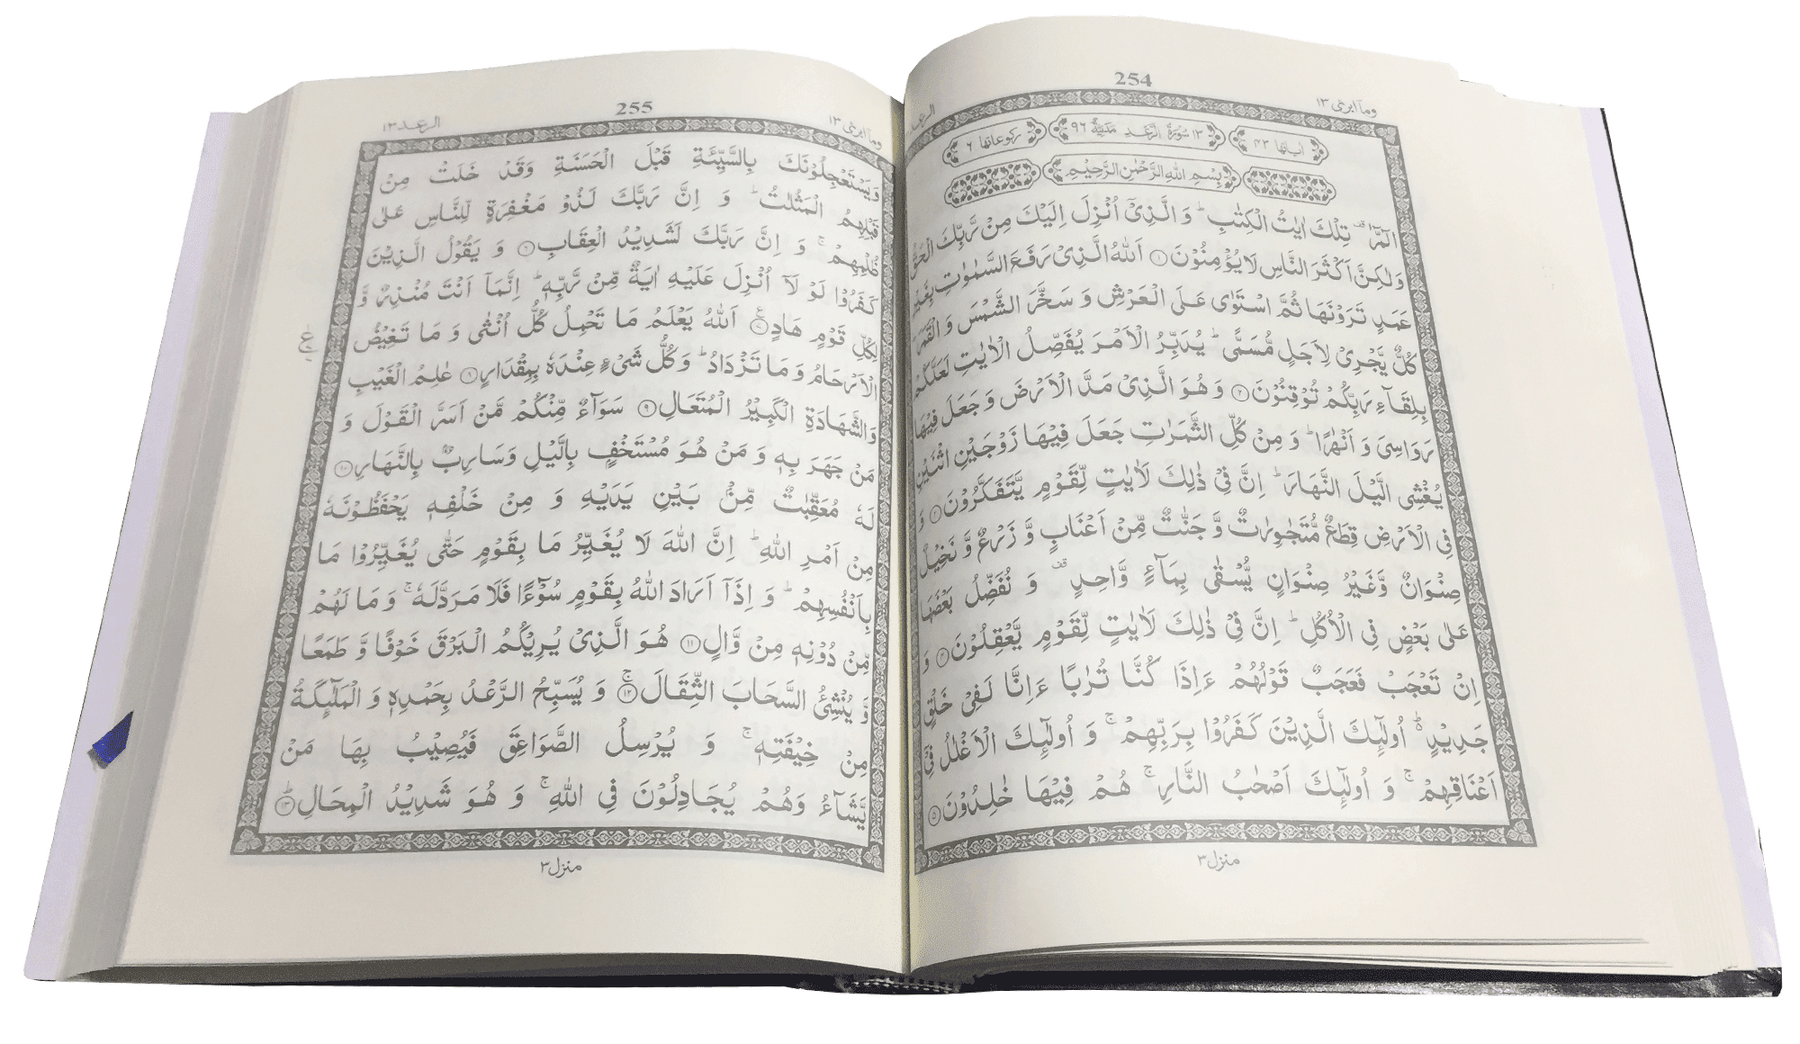 وما ابرئ ١٣
254
الرعد
اٰیاتها ٤٣
١٣ سُوْرَةُ الرَّعْدِ مَدَنِيَّةٌ ٩٦
رکوعاتها ٦
بِسْمِ اللّٰهِ الرَّحْمٰنِ الرَّحِیْمِ
الٓمّٓرٰ ۫ تِلْكَ اٰیٰتُ الْكِتٰبِ ؕ وَ الَّذِیْۤ اُنْزِلَ اِلَیْكَ مِنْ رَّبِّكَ الْحَقُّ
وَ لٰكِنَّ اَكْثَرَ النَّاسِ لَا یُؤْمِنُوْنَ ۝۱ اَللّٰهُ الَّذِیْ رَفَعَ السَّمٰوٰتِ بِغَیْرِ
عَمَدٍ تَرَوْنَهَا ثُمَّ اسْتَوٰی عَلَی الْعَرْشِ وَ سَخَّرَ الشَّمْسَ وَ الْقَمَرَ
كُلٌّ یَّجْرِیْ لِاَجَلٍ مُّسَمًّی ؕ یُدَبِّرُ الْاَمْرَ یُفَصِّلُ الْاٰیٰتِ لَعَلَّكُمْ
بِلِقَآءِ رَبِّكُمْ تُوْقِنُوْنَ ۝۲ وَ هُوَ الَّذِیْ مَدَّ الْاَرْضَ وَ جَعَلَ فِیْهَا
رَوَاسِیَ وَ اَنْهٰرًا ؕ وَ مِنْ كُلِّ الثَّمَرٰتِ جَعَلَ فِیْهَا زَوْجَیْنِ اثْنَیْنِ
یُغْشِی الَّیْلَ النَّهَارَ ؕ اِنَّ فِیْ ذٰلِكَ لَاٰیٰتٍ لِّقَوْمٍ یَّتَفَكَّرُوْنَ ۝۳ وَ
فِی الْاَرْضِ قِطَعٌ مُّتَجٰوِرٰتٌ وَّ جَنّٰتٌ مِّنْ اَعْنَابٍ وَّ زَرْعٌ وَّ نَخِیْلٌ
صِنْوَانٌ وَّ غَیْرُ صِنْوَانٍ یُّسْقٰی بِمَآءٍ وَّاحِدٍ ۫ وَ نُفَضِّلُ بَعْضَهَا
عَلٰی بَعْضٍ فِی الْاُكُلِ ؕ اِنَّ فِیْ ذٰلِكَ لَاٰیٰتٍ لِّقَوْمٍ یَّعْقِلُوْنَ ۝۴ وَ
اِنْ تَعْجَبْ فَعَجَبٌ قَوْلُهُمْ ءَاِذَا كُنَّا تُرٰبًا ءَاِنَّا لَفِیْ خَلْقٍ
جَدِیْدٍ ؕ۬ اُولٰٓىِٕكَ الَّذِیْنَ كَفَرُوْا بِرَبِّهِمْ ۚ وَ اُولٰٓىِٕكَ الْاَغْلٰلُ فِیْۤ
اَعْنَاقِهِمْ ۚ وَ اُولٰٓىِٕكَ اَصْحٰبُ النَّارِ ۚ هُمْ فِیْهَا خٰلِدُوْنَ ۝۵
منزل ٣
وما ابرئ ١٣
255
الرعد ١٣
وَ یَسْتَعْجِلُوْنَكَ بِالسَّیِّئَةِ قَبْلَ الْحَسَنَةِ وَ قَدْ خَلَتْ مِنْ
قَبْلِهِمُ الْمَثُلٰتُ ؕ وَ اِنَّ رَبَّكَ لَذُوْ مَغْفِرَةٍ لِّلنَّاسِ عَلٰی
ظُلْمِهِمْ ۚ وَ اِنَّ رَبَّكَ لَشَدِیْدُ الْعِقَابِ ۝۶ وَ یَقُوْلُ الَّذِیْنَ
كَفَرُوْا لَوْ لَاۤ اُنْزِلَ عَلَیْهِ اٰیَةٌ مِّنْ رَّبِّهٖ ؕ اِنَّمَاۤ اَنْتَ مُنْذِرٌ وَّ
لِكُلِّ قَوْمٍ هَادٍ ۝۷ اَللّٰهُ یَعْلَمُ مَا تَحْمِلُ كُلُّ اُنْثٰی وَ مَا تَغِیْضُ
ع
الْاَرْحَامُ وَ مَا تَزْدَادُ ؕ وَ كُلُّ شَیْءٍ عِنْدَهٗ بِمِقْدَارٍ ۝۸ عٰلِمُ الْغَیْبِ
وَ الشَّهَادَةِ الْكَبِیْرُ الْمُتَعَالِ ۝۹ سَوَآءٌ مِّنْكُمْ مَّنْ اَسَرَّ الْقَوْلَ وَ
مَنْ جَهَرَ بِهٖ وَ مَنْ هُوَ مُسْتَخْفٍ بِالَّیْلِ وَ سَارِبٌۢ بِالنَّهَارِ ۝۱۰
لَهٗ مُعَقِّبٰتٌ مِّنْۢ بَیْنِ یَدَیْهِ وَ مِنْ خَلْفِهٖ یَحْفَظُوْنَهٗ
مِنْ اَمْرِ اللّٰهِ ؕ اِنَّ اللّٰهَ لَا یُغَیِّرُ مَا بِقَوْمٍ حَتّٰی یُغَیِّرُوْا مَا
بِاَنْفُسِهِمْ ؕ وَ اِذَاۤ اَرَادَ اللّٰهُ بِقَوْمٍ سُوْٓءًا فَلَا مَرَدَّ لَهٗ ۚ وَ مَا لَهُمْ
مِّنْ دُوْنِهٖ مِنْ وَّالٍ ۝۱۱ هُوَ الَّذِیْ یُرِیْكُمُ الْبَرْقَ خَوْفًا وَّ طَمَعًا
وَّ یُنْشِئُ السَّحَابَ الثِّقَالَ ۝۱۲ۚ وَ یُسَبِّحُ الرَّعْدُ بِحَمْدِهٖ وَ الْمَلٰٓىِٕكَةُ
مِنْ خِیْفَتِهٖ ۚ وَ یُرْسِلُ الصَّوَاعِقَ فَیُصِیْبُ بِهَا مَنْ
یَّشَآءُ وَ هُمْ یُجَادِلُوْنَ فِی اللّٰهِ ۚ وَ هُوَ شَدِیْدُ الْمِحَالِ ۝۱۳ؕ
منزل ٣